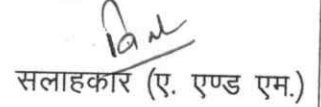 सलाहकार (ए. एण्ड एम.)